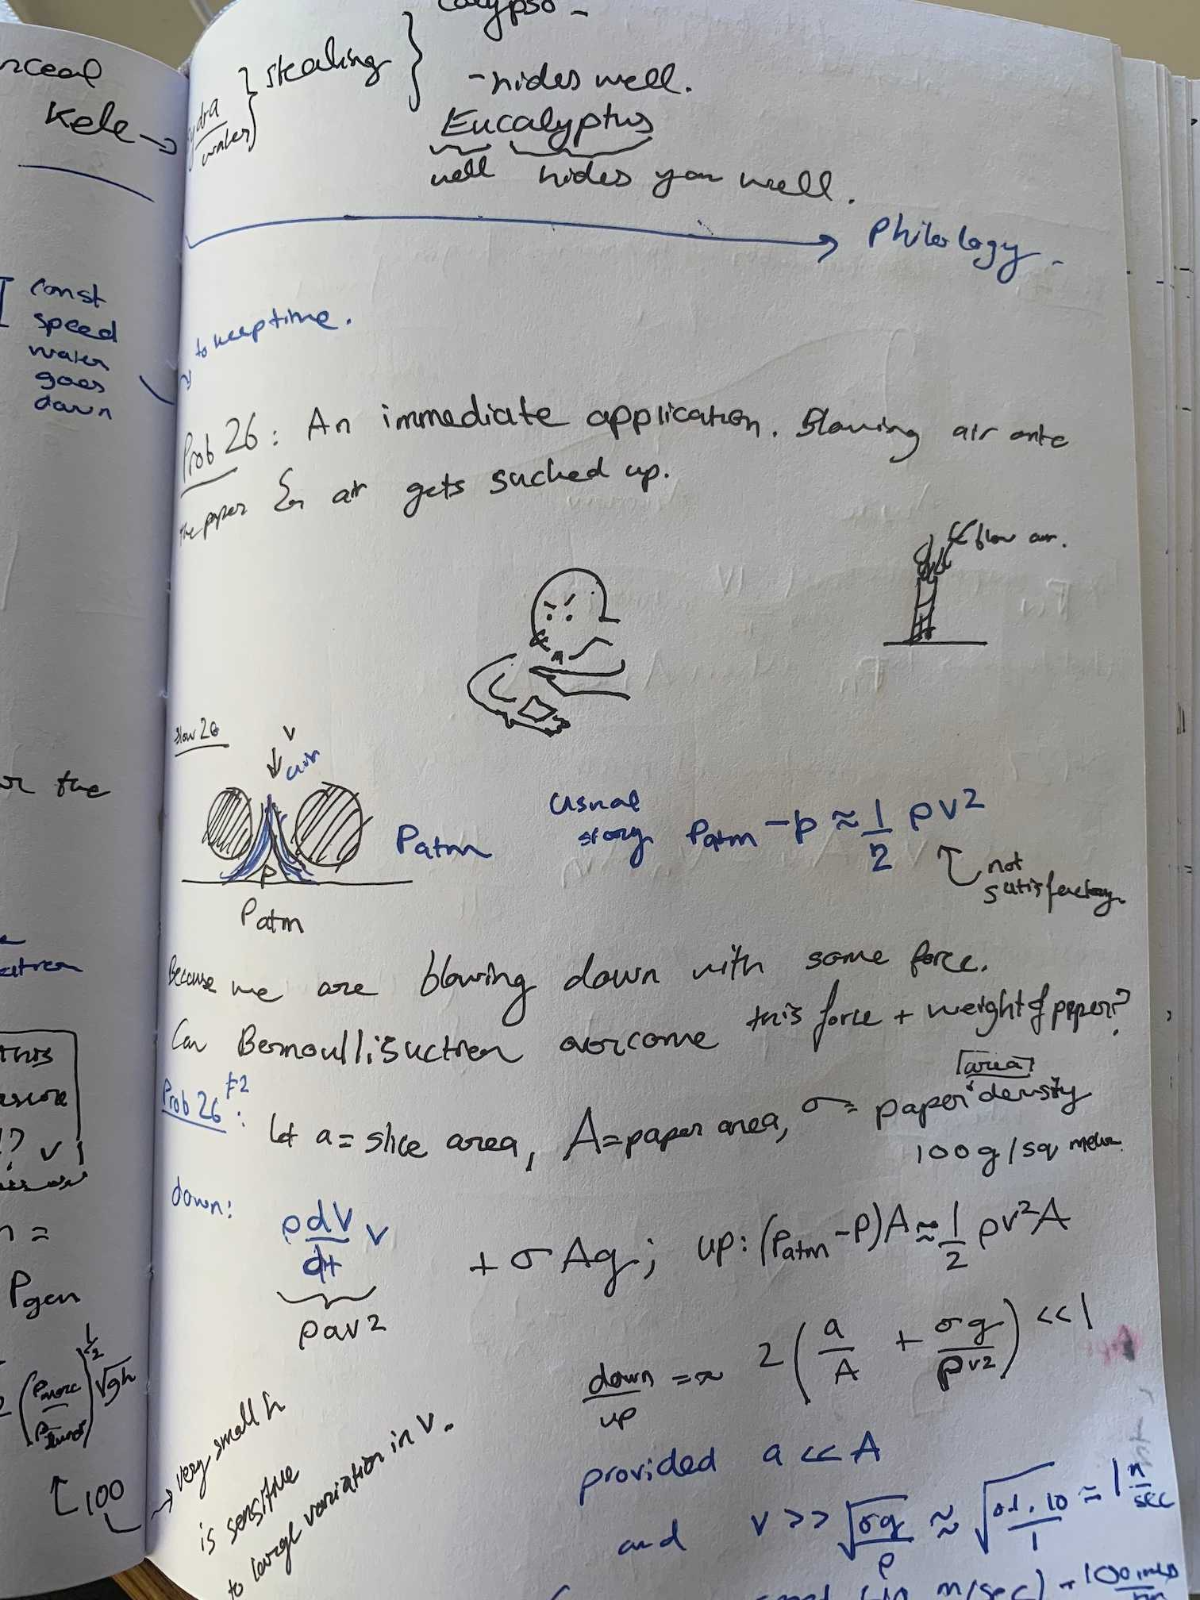 Calypso -
stealing
-hides well.
Eucalyptus
well hides you well.
Philology.
to keep time.
Prob 26: An immediate application. Blowing air onto
the paper & air gets sucked up.
blow air.
v
air
Patm
P
Patm
usual
story Patm - p ≈ 1/2 ρv²
not
satisfactory
Because we are blowing down with some force.
Can Bernoulli suction overcome this force + weight of paper?
Prob 26
Let a = slice area, A = paper area, σ = paper area density
100g/sq meter
down: ρ dV/dt v + σAg; up: (Patm - P)A ≈ 1/2 ρv²A
ρav²
down/up = ≈ 2(a/A + σg/ρv²) << 1
provided a << A
and v >> √(σg/ρ) ≈ √(0.1 · 10/1) ≈ 1 m/sec
m/sec)
very small h
is sensitive
to large variation in v.
Kele
const
speed
water
goes
down
the
this
Pgen
√gh
100